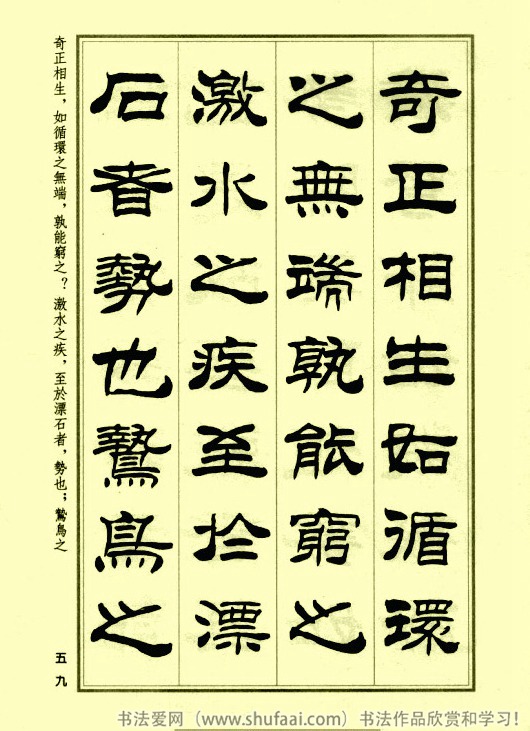 奇正相生如循環
之無端孰能窮之
激水之疾至於漂
石者勢也鷙鳥之
奇正相生，如循環之無端，孰能窮之？激水之疾，至於漂石者，勢也；鷙鳥之
五九
书法爱网（www.shufaai.com）书法作品欣赏和学习！